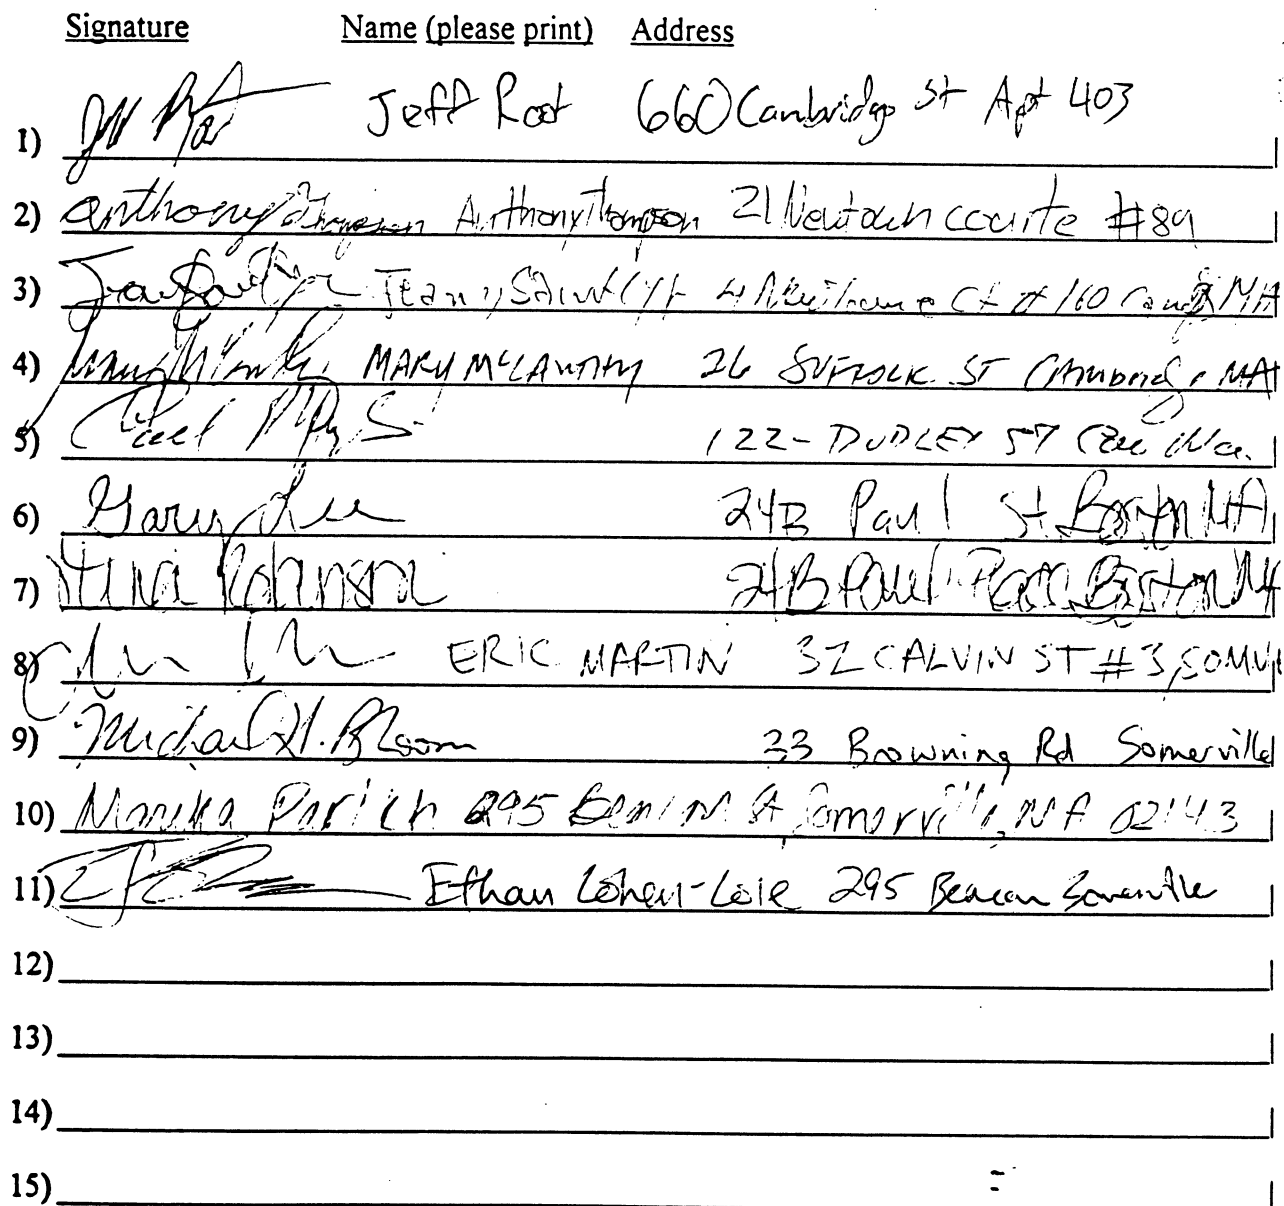 Signature Name (please print) Address
1) Jeff Root 660 Cambridge St Apt 403
2) Anthony Thompson Anthony Thompson 21 Newtown courte #89
3) Ct # 160 MA
4) MARY McCARTHY 26 SUFFOLK ST MA
5) Paul 122 - DUDLEY ST
6) Gary Lee 24B Paul St Boston MA
7) Robinson 24B Paul Boston MA
8) ERIC MARTIN 32 CALVIN ST #3, SOMVI
9) Michael H. Bloom 33 Browning Rd Somerville
10) Parich 295 Beacon St, Somerville, MA 02143
11) Ethan 295 Beacon Somerville
12)
13)
14)
15)